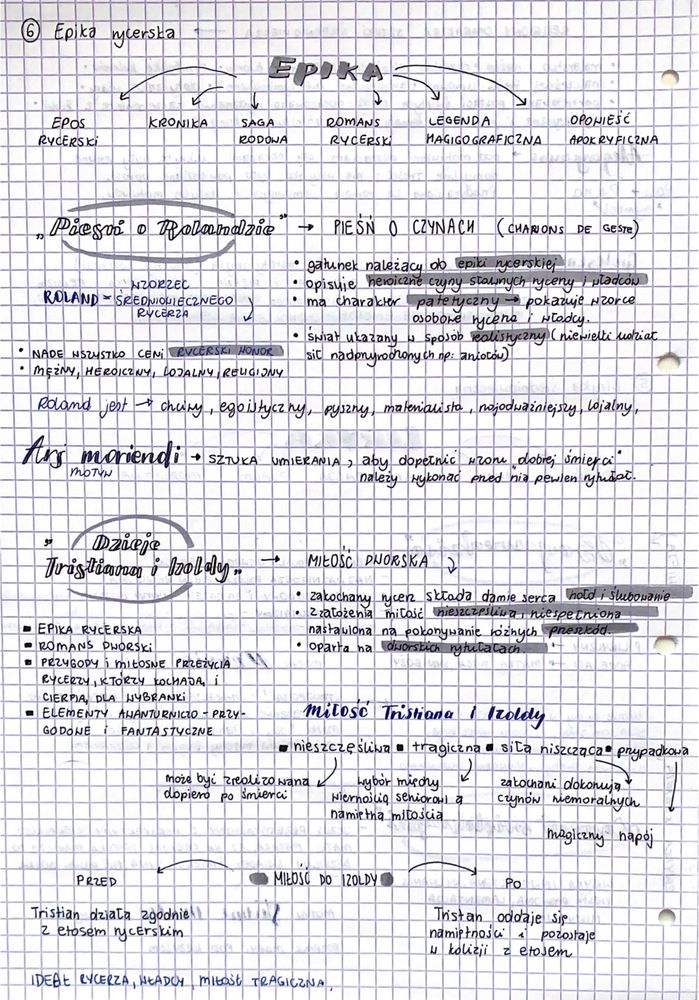 ⑥ Epika rycerska
EPIKA
EPOS RYCERSKI
KRONIKA
SAGA RODOWA
ROMANS RYCERSKI
LEGENDA HAGIGOGRAFICZNA
OPOWIEŚĆ APOKRYFICZNA
„Pieśń o Rolandzie" → PIEŚŃ O CZYNACH (CHARIONS DE GESTE)
• gatunek należący do epiki rycerskiej
• opisuje heroiczne czyny sławnych rycerzy i władców
• ma charakter patetyczny → pokazuje wzorce
osobowe rycerza i władcy.
• świat ukazany w sposób realistyczny (niewielki udział
sił nadprzyrodzonych np: aniołów)
ROLAND = WZORZEC
ŚREDNIOWIECZNEGO
RYCERZA
• NADE WSZYSTKO CENI RYCERSKI HONOR
• MĘŻNY, HEROICZNY, LOJALNY, RELIGIJNY
Roland jest → chciwy, egoistyczny, pyszny, materialista, najodważniejszy, lojalny,
Ars moriendi → SZTUKA UMIERANIA, aby dopełnić wzoru „dobrej śmierci"
MOTYW
należy wykonać przed nią pewien rytuał.
„Dzieje
Tristiana i Izoldy„ → MIŁOŚĆ DWORSKA
• zakochany rycerz składa damie serca hołd i ślubowanie
• z założenia miłość nieszczęśliwa, niespełniona
nastawiona na pokonywanie różnych przeszkód.
• oparta na dworskich rytuałach.
▪ EPIKA RYCERSKA
▪ ROMANS DWORSKI
▪ PRZYGODY i MIŁOSNE PRZEŻYCIA
RYCERZY, KTÓRZY KOCHAJĄ i
CIERPIĄ DLA WYBRANKI
▪ ELEMENTY AWANTURNICZO-PRZY-
GODOWE i FANTASTYCZNE
Miłość Tristiana i Izoldy
▪ nieszczęśliwa ▪ tragiczna ▪ siła niszcząca ▪ przypadkowa
może być zrealizowana
dopiero po śmierci
wybór między
wiernością seniorowi a
namiętną miłością
zakochani dokonują
czynów niemoralnych
magiczny napój
PRZED ← MIŁOŚĆ DO IZOLDY → PO
Tristian działa zgodnie
z etosem rycerskim
Tristan oddaje się
namiętności i pozostaje
w kolizji z etosem
IDEAŁ RYCERZA, WŁADCY, MIŁOŚĆ TRAGICZNA.